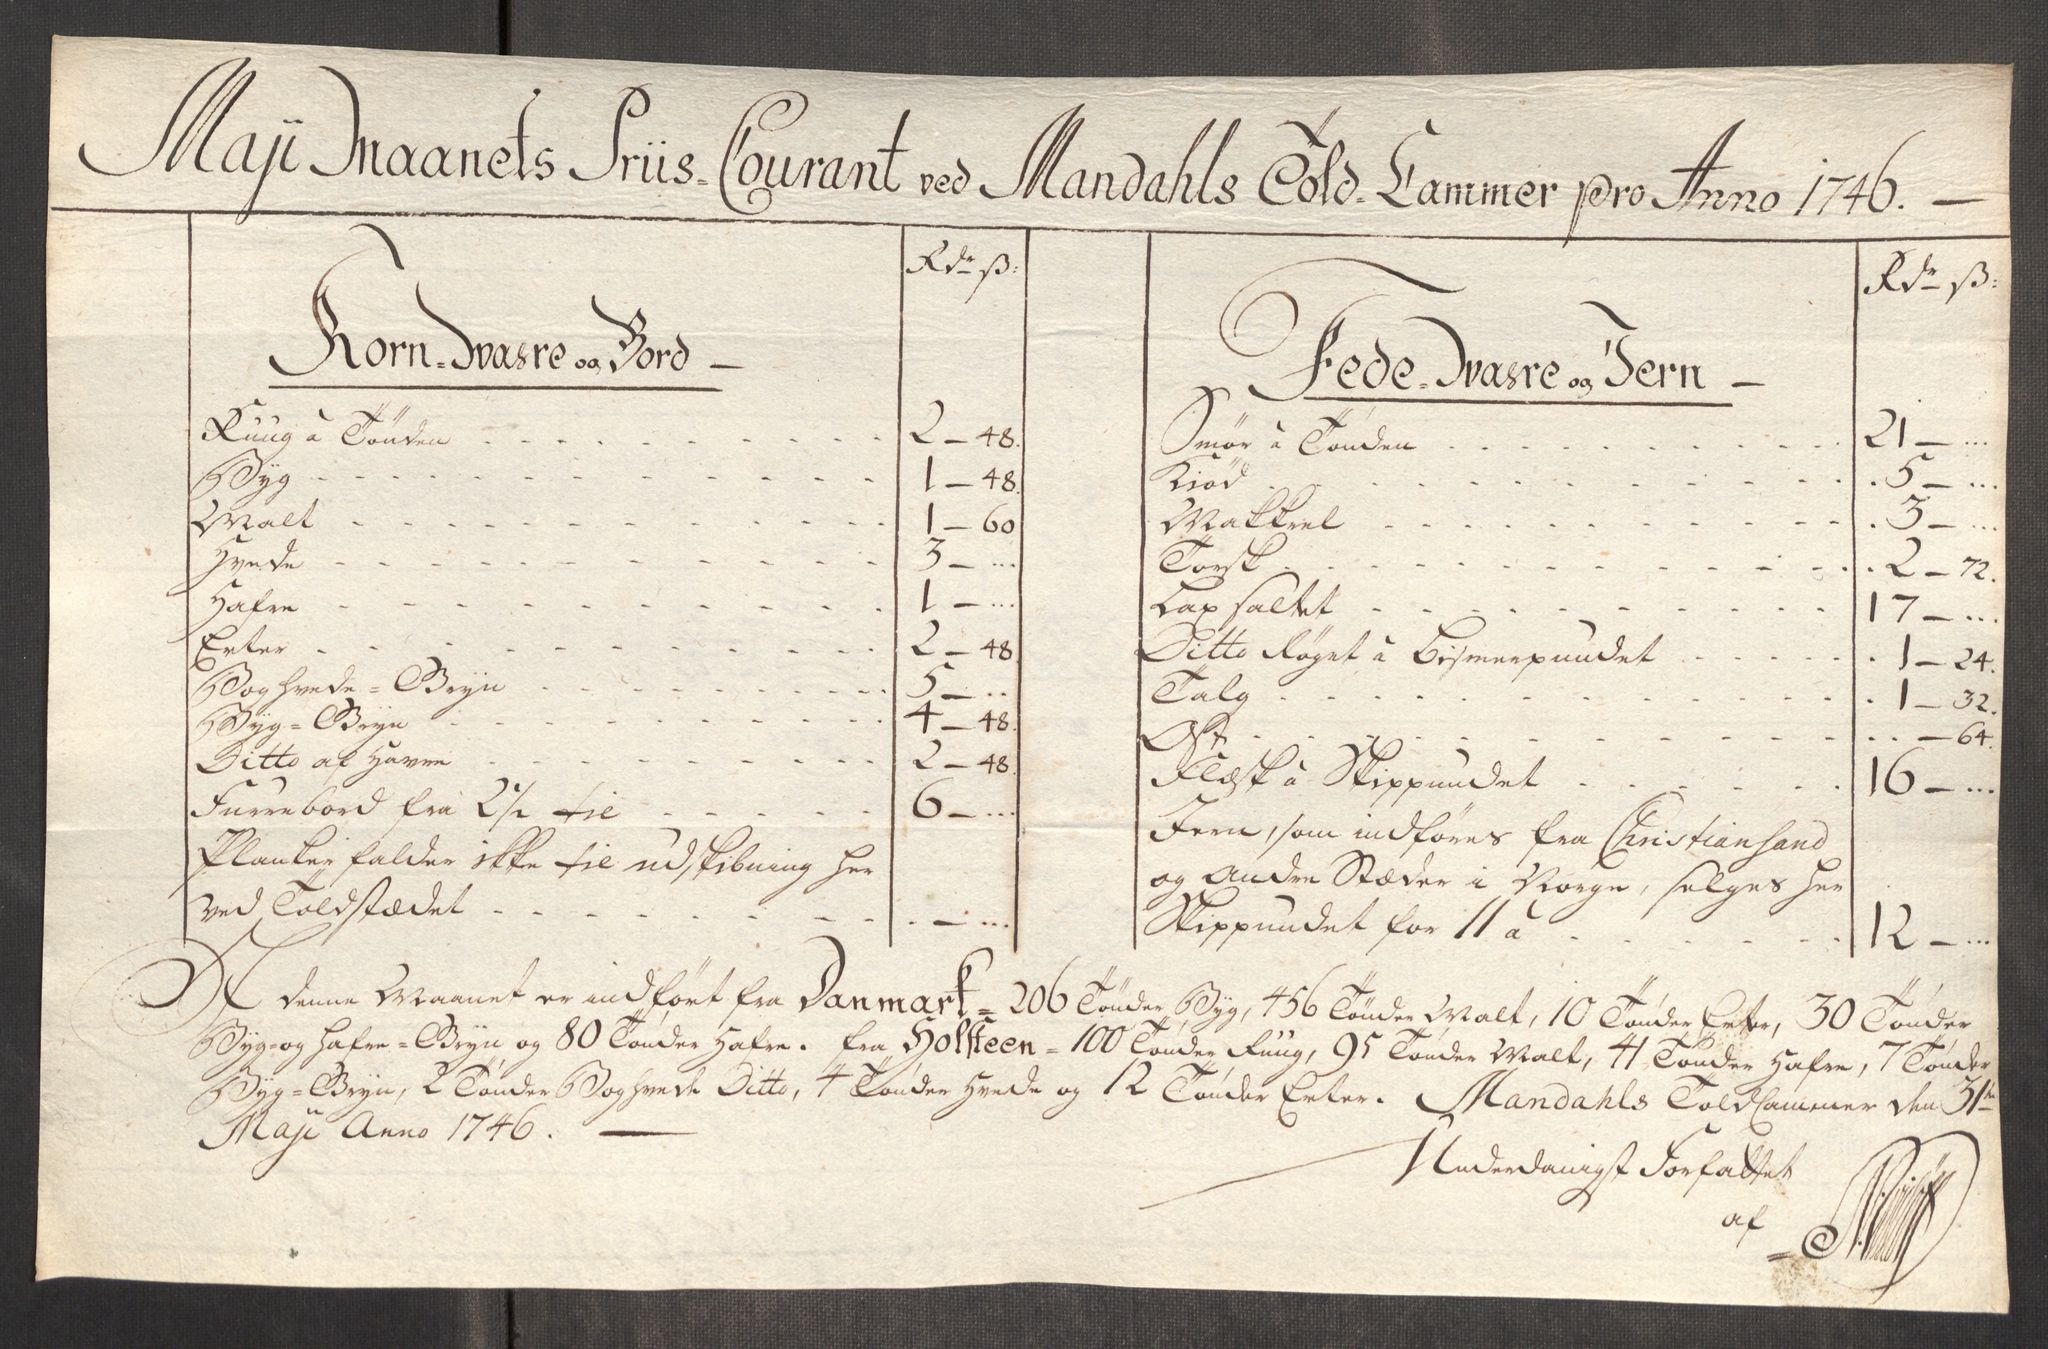 Maji Maanets Priis-Courant ved Mandahls Told-Cammer pro Anno 1746. —
Rdr ß:
Korn-Vahre og Bord —
Ruug à Tönden 2 — 48.
Byg 1 — 48.
Malt 1 — 60
Hvede 3 — ...
Hafre 1 — ...
Erter 2 — 48.
Boghvede-Gryn 5 — ...
Byg-Gryn 4 — 48.
Ditto af Havre 2 — 48.
Furrebord fra 2½ til 6 — ...
Planker falder ikke til udskibning her
ved Toldstædet . — ...
Rdr ß:
Fede-Vahre og Jern —
Smör à Tönden 21 — ...
Kiöd 5 — ...
Makkrel 3 — ...
Torsk 2 — 72.
Lax saltet 17 — ...
Ditto Röget à Bismerpundet 1 — 24.
Talg 1 — 32.
Ost — 64.
Flæsk à Skippundet 16 — ...
Jern, som indföres fra Christiansand
og andre Stæder i Norge, selges her
Skippundet for 11 à 12 — ...
I denne Maanet er indfört fra Danmark = 206 Tönder Byg, 456 Tönder Malt, 10 Tönder Erter, 30 Tönder
Byg- og Hafre-Gryn og 80 Tönder Hafre. fra Holsteen = 100 Tönder Ruug, 95 Tönder Malt, 41 Tönder Hafre, 7 Tönder
Byg-Gryn, 2 Tönder Boghvede Ditto, 4 Tönder Hvede og 12 Tönder Erter. Mandahls Told Cammer den 31te
Maji Anno 1746. —
Underdanigst Forfattet
af